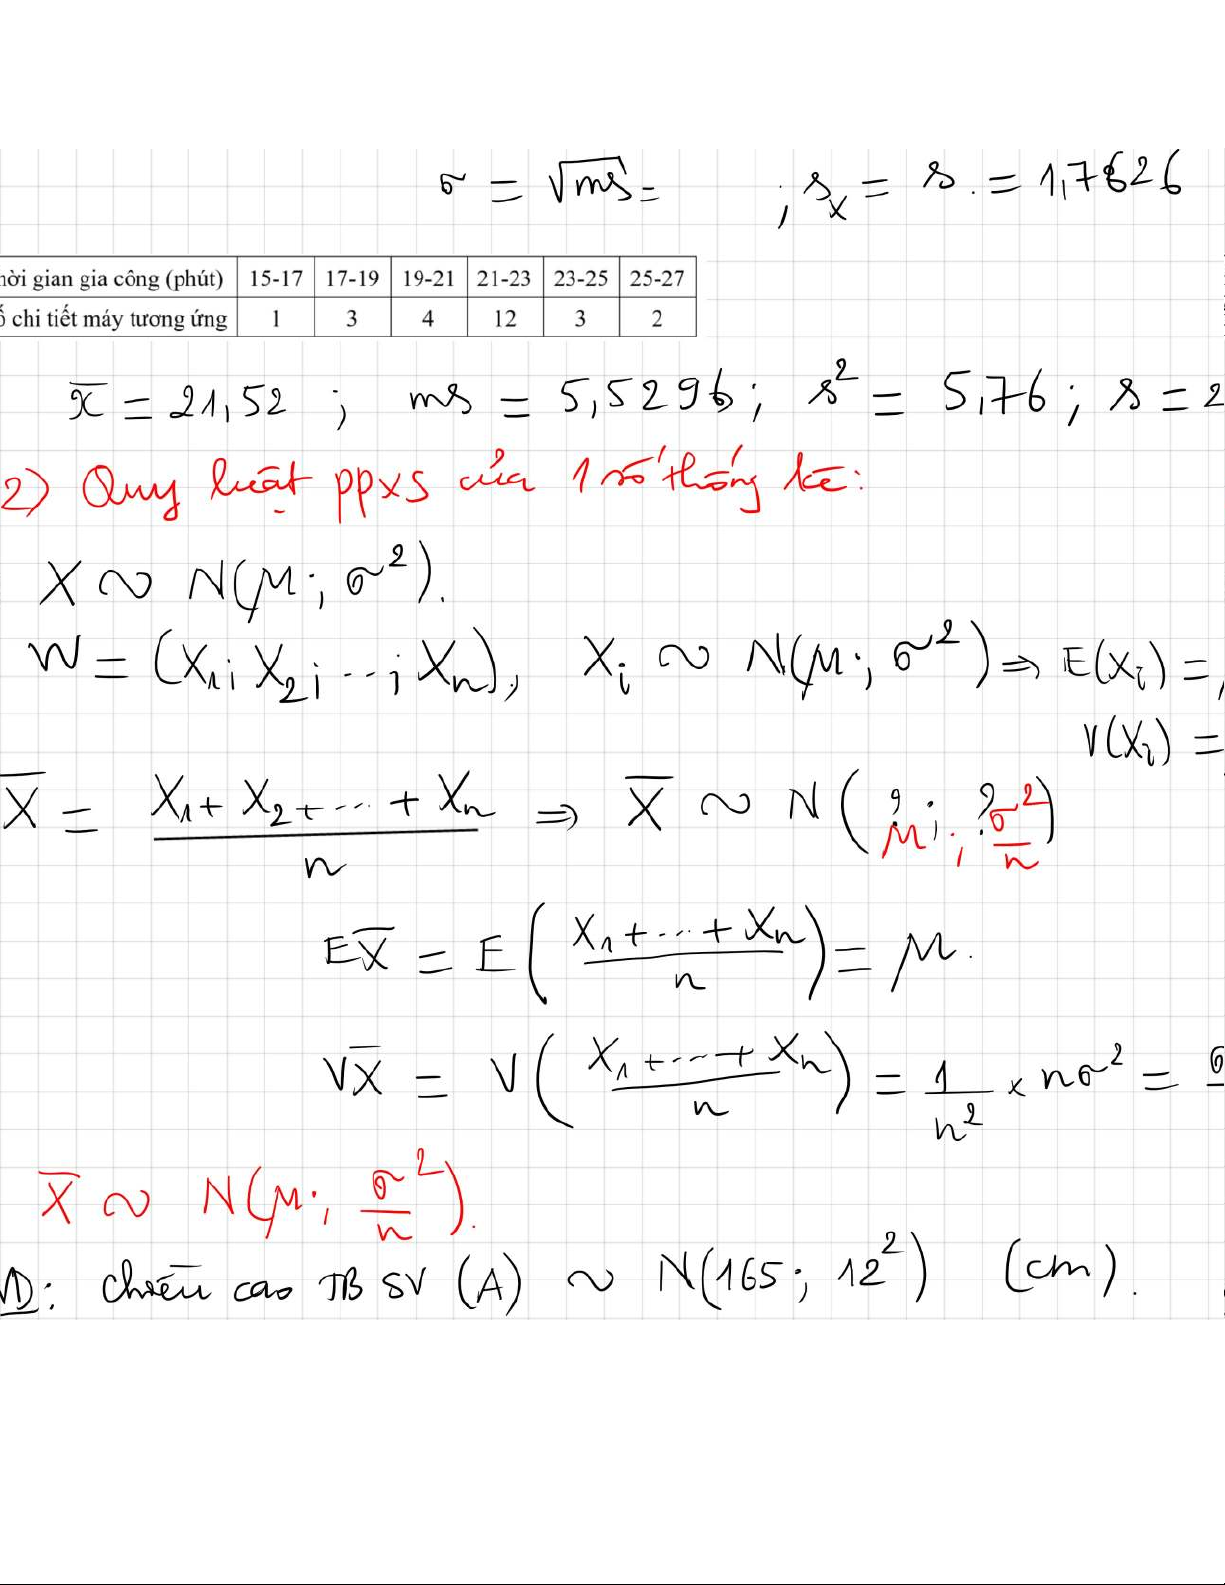 σ = √ms = ; s_x = s = 1,7626
hời gian gia công (phút) 15-17 17-19 19-21 21-23 23-25 25-27
ố chi tiết máy tương ứng 1 3 4 12 3 2
x̄ = 21,52 ; ms = 5,5296 ; s² = 5,76 ; s = 2
2) Quy luật ppxs của 1 số thống kê:
X ~ N(μ; σ²).
W = (X₁; X₂; ...; Xₙ), Xᵢ ~ N(μ; σ²) ⇒ E(Xᵢ) =
V(Xᵢ) =
X̄ = (X₁ + X₂ + ... + Xₙ)/n ⇒ X̄ ~ N(? ; ?)
μ ; σ²/n
EX̄ = E((X₁ + ... + Xₙ)/n) = μ.
VX̄ = V((X₁ + ... + Xₙ)/n) = 1/n² × nσ² =
X̄ ~ N(μ; σ²/n).
VD: chiều cao TB SV (A) ~ N(165; 12²) (cm).